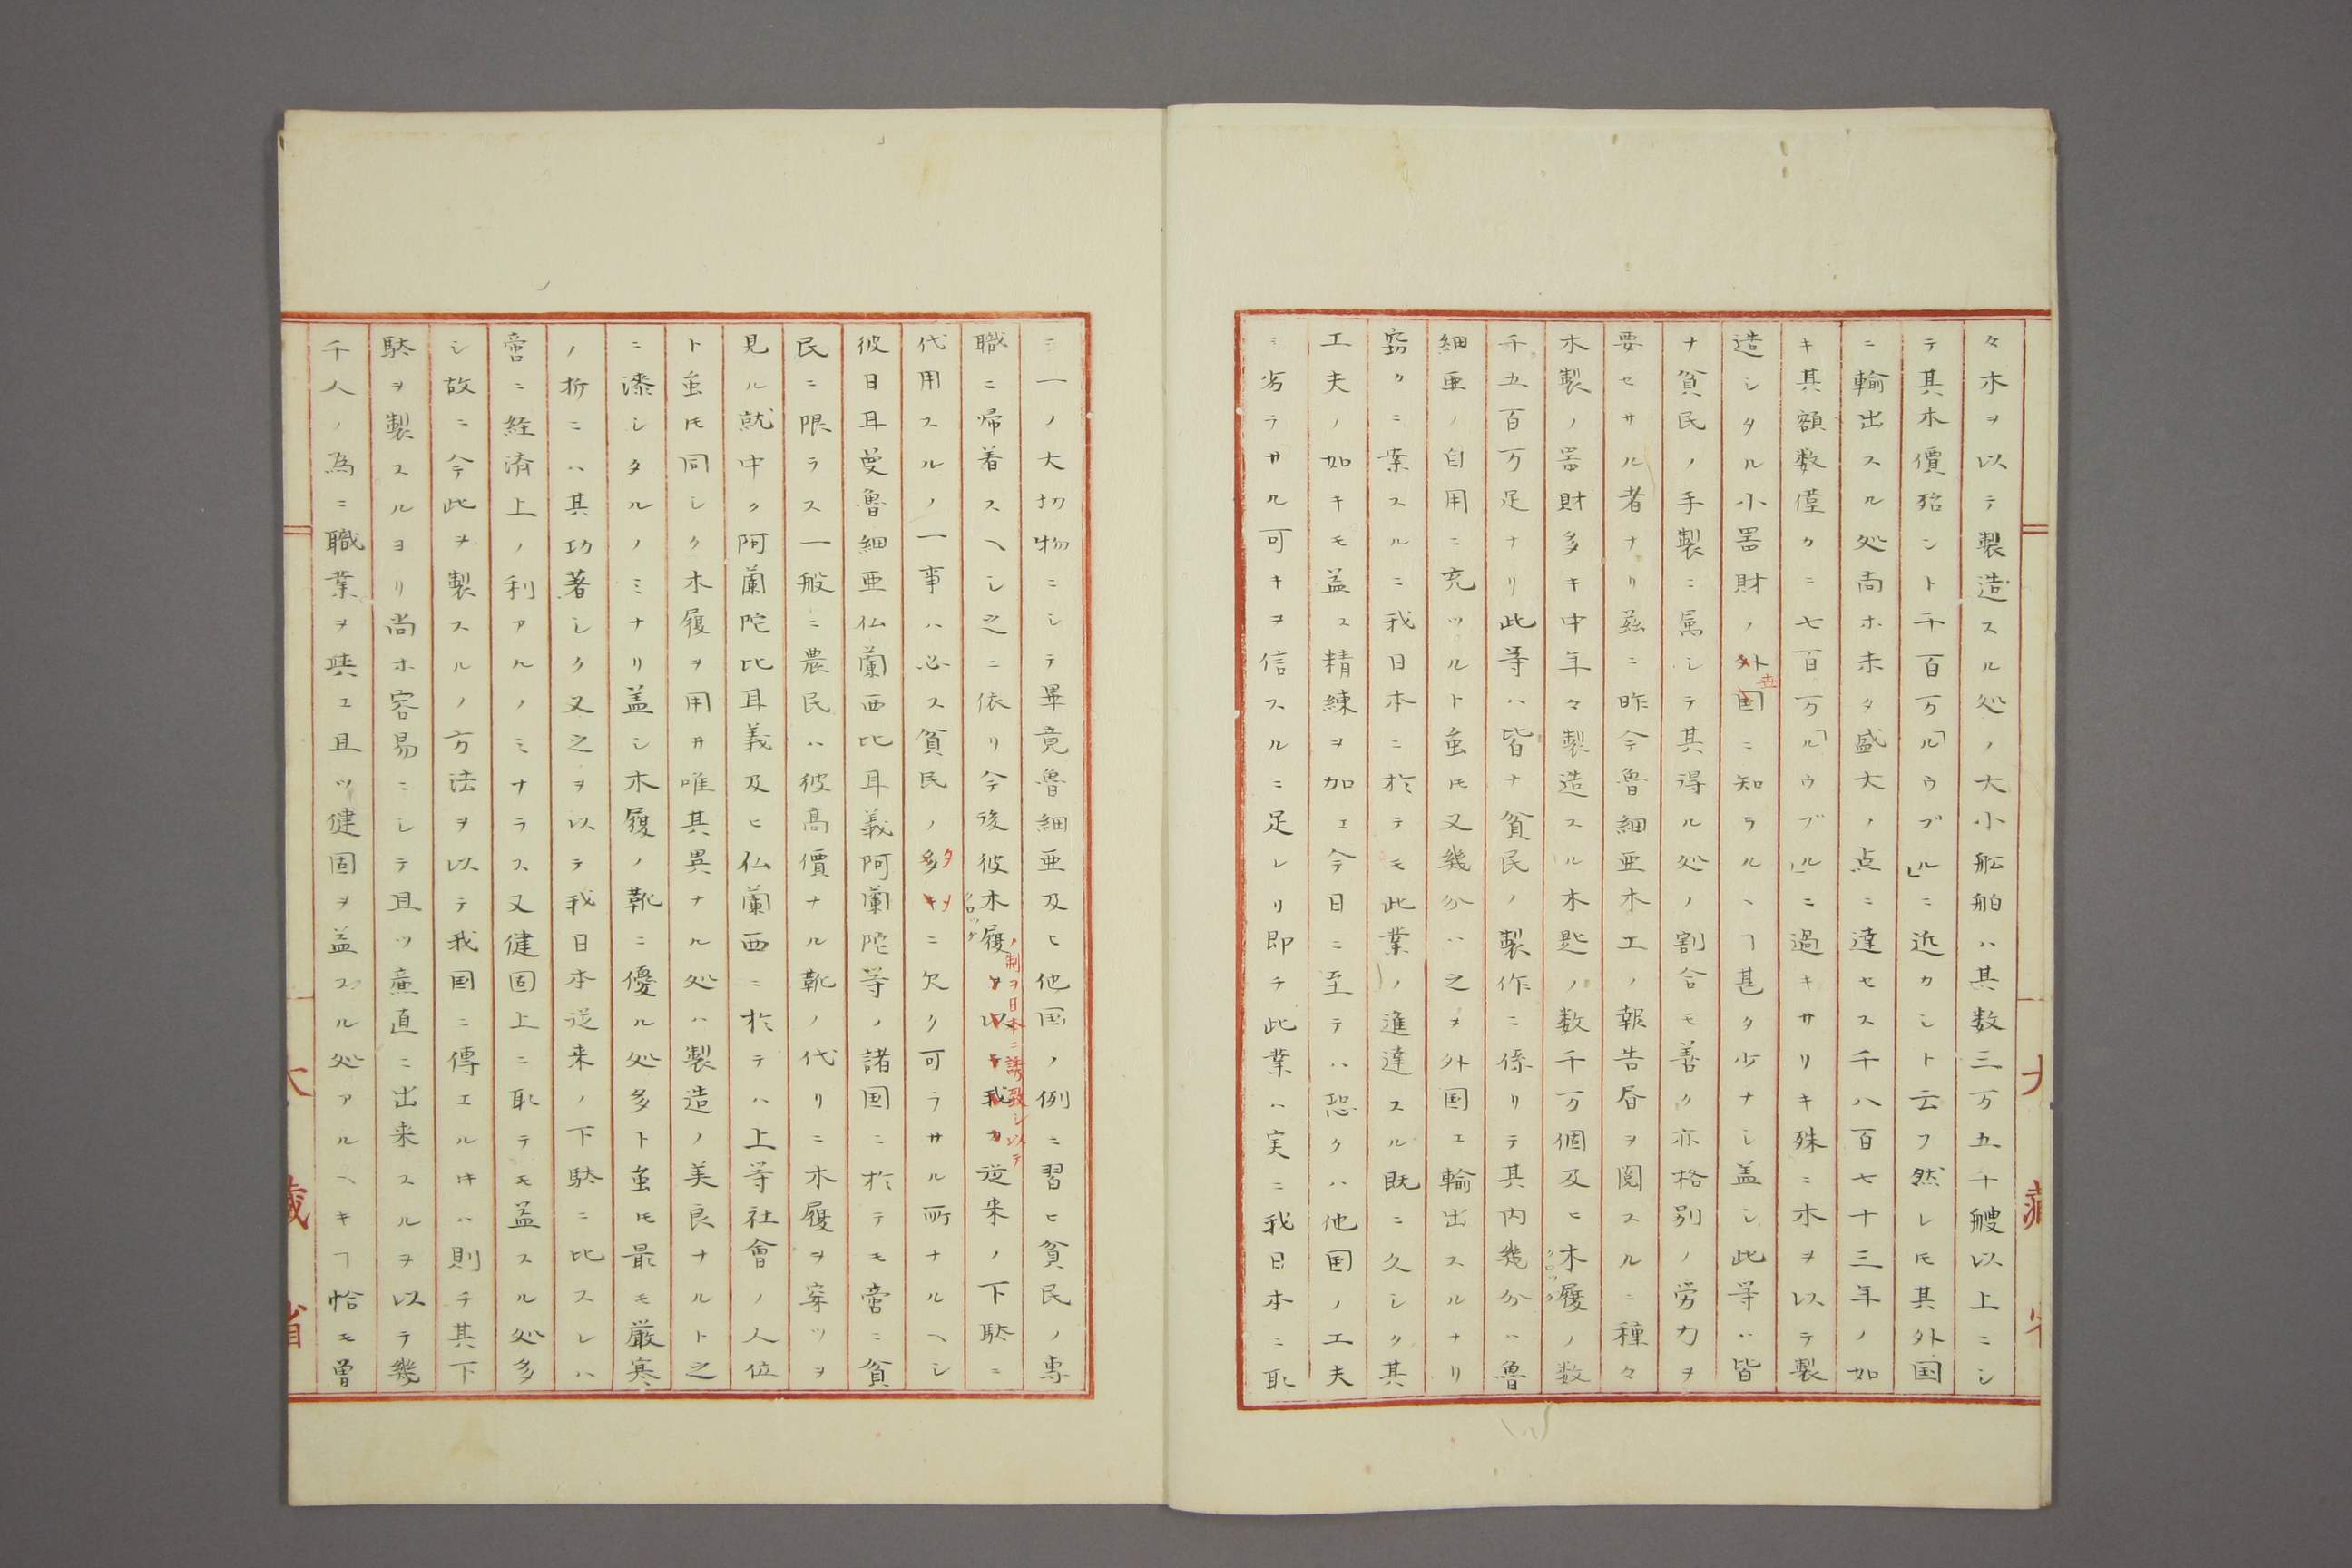 々木ヲ以テ製造スル処ノ大小舩舶ハ其数三万五千艘以上ニシ
テ其木價殆ント千百万「ルウブル」ニ近カシト云フ然レ𪜈其外国
ニ輸出スル処尚ホ未タ盛大ノ点ニ達セス千八百七十三年ノ如
キ其額数僅カニ七百万「ルウブル」ニ過キサリキ殊ニ木ヲ以テ製
造シタル小噐財ノ外国ニ知ラルヽヿ甚タ少ナシ盖シ此等ハ皆
世
ナ貧民ノ手製ニ属シテ其得ル処ノ割合モ善ク亦格別ノ労力ヲ
要セサル者ナリ茲ニ昨今魯細亜木工ノ報告昏ヲ閲スルニ種々
木製ノ噐財多キ中年々製造スル木匙ノ数千万個及ヒ木履ノ数
クロック
千五百万足ナリ此等ハ皆ナ貧民ノ製作ニ係リテ其内幾分ハ魯
細亜ノ自用ニ充ツルト虽𪜈又幾分ハ之ヲ外国エ輸出スルナリ
窃カニ案スルニ我日本ニ於テモ此業ノ進達スル既ニ久シク其
工夫ノ如キモ益ス精練ヲ加エ今日ニ至テハ恐クハ他国ノ工夫
ニ劣ラサル可キヲ信スルニ足レリ即チ此業ハ実ニ我日本ニ取
大藏省
ニ一ノ大切物ニシテ畢竟魯細亜及ヒ他国ノ例ニ習ヒ貧民ノ專
職ニ帰着スヘシ之ニ依リ今後彼木履ヲ以テ我カ従来ノ下駄ニ
クロック
ノ制ヲ日本ニ誘致シ以テ
代用スルノ一事ハ必ス貧民ノ多キニ欠ク可ラサル所ナルヘシ
タヲ
彼日耳曼魯細亜仏蘭西比耳義阿蘭陀等ノ諸国ニ於テモ啻ニ貧
民ニ限ラス一般ニ農民ハ彼高價ナル靴ノ代リニ木履ヲ穿ツヲ
見ル就中ク阿蘭陀比耳義及ヒ仏蘭西ニ於テハ上等社會ノ人位
ト虽𪜈同シク木履ヲ用井唯其異ナル処ハ製造ノ美良ナルト之
ニ漆シタルノミナリ盖シ木履ノ靴ニ優ル処多ト虽𪜈最モ厳寒
ノ折ニハ其功著シク又之ヲ以テ我日本従来ノ下駄ニ比スレハ
啻ニ経済上ノ利アルノミナラス又健固上ニ取テモ益スル処多
シ故ニ今此ヲ製スルノ方法ヲ以テ我国ニ傳エル𪜈ハ則チ其下
駄ヲ製スルヨリ尚ホ容易ニシテ且ツ廉直ニ出来スルヲ以テ幾
千人ノ為ニ職業ヲ與エ且ツ健固ヲ益スル処アルヘキヿ恰モ曽
大藏省